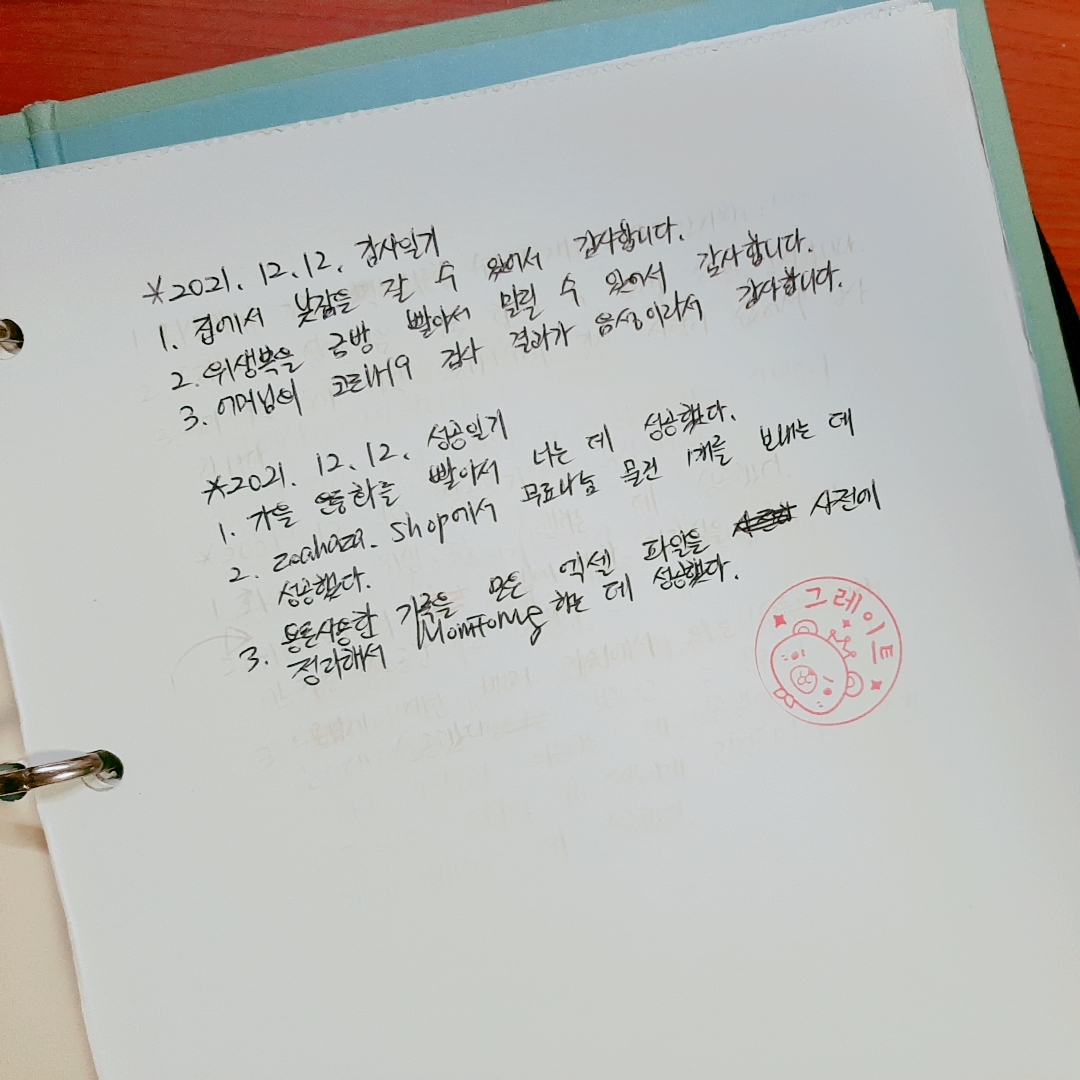 *2021. 12. 12. 감사일기
1. 집에서 낮잠을 잘 수 있어서 감사합니다.
2. 위생복을 금방 빨아서 말릴 수 있어서 감사합니다.
3. 어머님의 코로나19 검사 결과가 음성이라서 감사합니다.
*2021. 12. 12. 성공일기
1. 가을 운동화를 빨아서 너는 데 성공했다.
2. zoahaza. shop에서 무료나눔 물건 1개를 보내는 데
성공했다.
3. 용돈사용한 기록을 모은 엑셀 파일을 사전에
정리해서 Momtomg 하는 데 성공했다.
그레이트